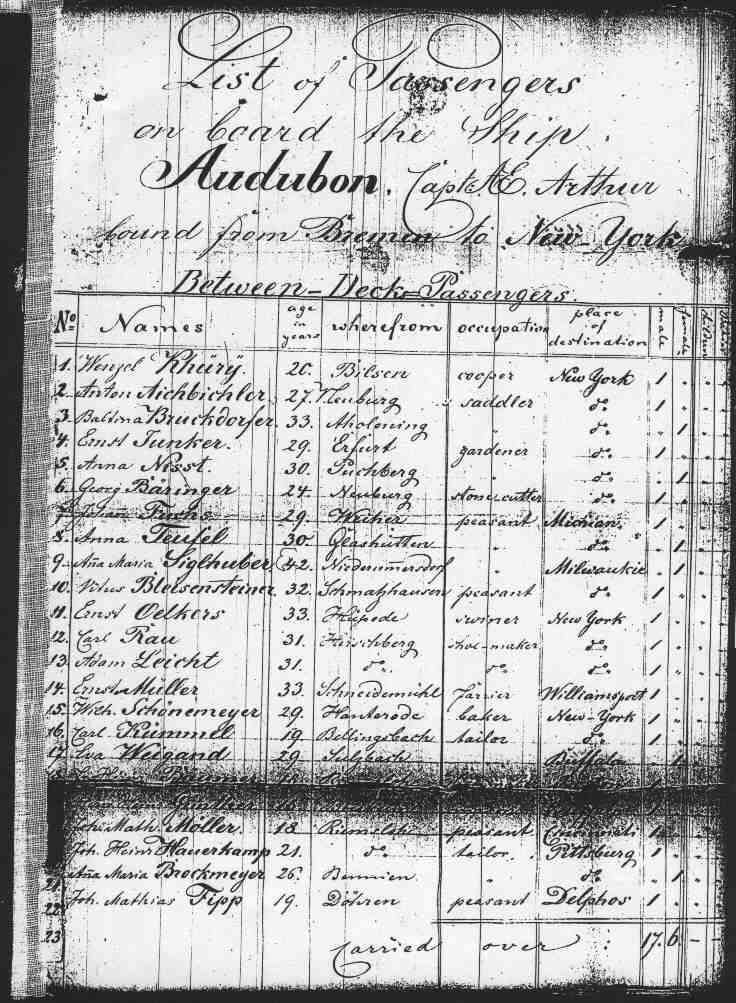 List of Passengers
on board the Ship
Audubon. Capt. AE. Arthur
bound from Bremen to New-York
Between-Deck-Passengers.
No. Names age in years wherefrom occupation place of destination male female
1. Wenzel Khüry. 20. Pilsen cooper New York 1
2. Anton Aichbichler. 27. Neuburg saddler do. 1
3. Baldina Bruckdorfer. 33. Aholming " do. 1
4. Ernst Junker. 29. Erfurt gardener do. 1
5. Anna Nisst. 30. Puchberg " do. 1
6. Georg Bäringer 24. Neuburg stonecutter do. 1
7. Johann Fuchs 29. Weiher peasant Michian. 1
8. Anna Teufel 30. Glashütten " do. 1
9. Aña Maria Siglhuber. 42. Niederummersdorf " Milwaukie 1
10. Vitus Bleisensteiner. 32. Schmatzhausen peasant do. 1
11. Ernst Oelkers 33. Hüpede joiner New York 1
12. Carl Rau 31. Hirschberg shoe-maker do. 1
13. Adam Leicht 31. do. do. do. 1
14. Ernst Müller 33. Schneidemühl Farrier Williamsport 1
15. Wilh. Schönemeyer 29. Hanterode baker New-York 1
16. Carl Kümmel 19. Bellingsbach tailor do. 1
17. Eva Weigand 29. Sulzbach Buffalo 1
18.
Günther
Joh. Math. Möller. 18. peasant Cincinnati 1
Joh. Heinr. Hauerkamp 21. do. tailor. Pittsburg 1
21. Aña Maria Brockmeyer 26. Bennien. " do. 1
22. Joh. Mathias Fipp 19. Döhren peasant Delphos 1
23 Carried over : 17. 6. - -